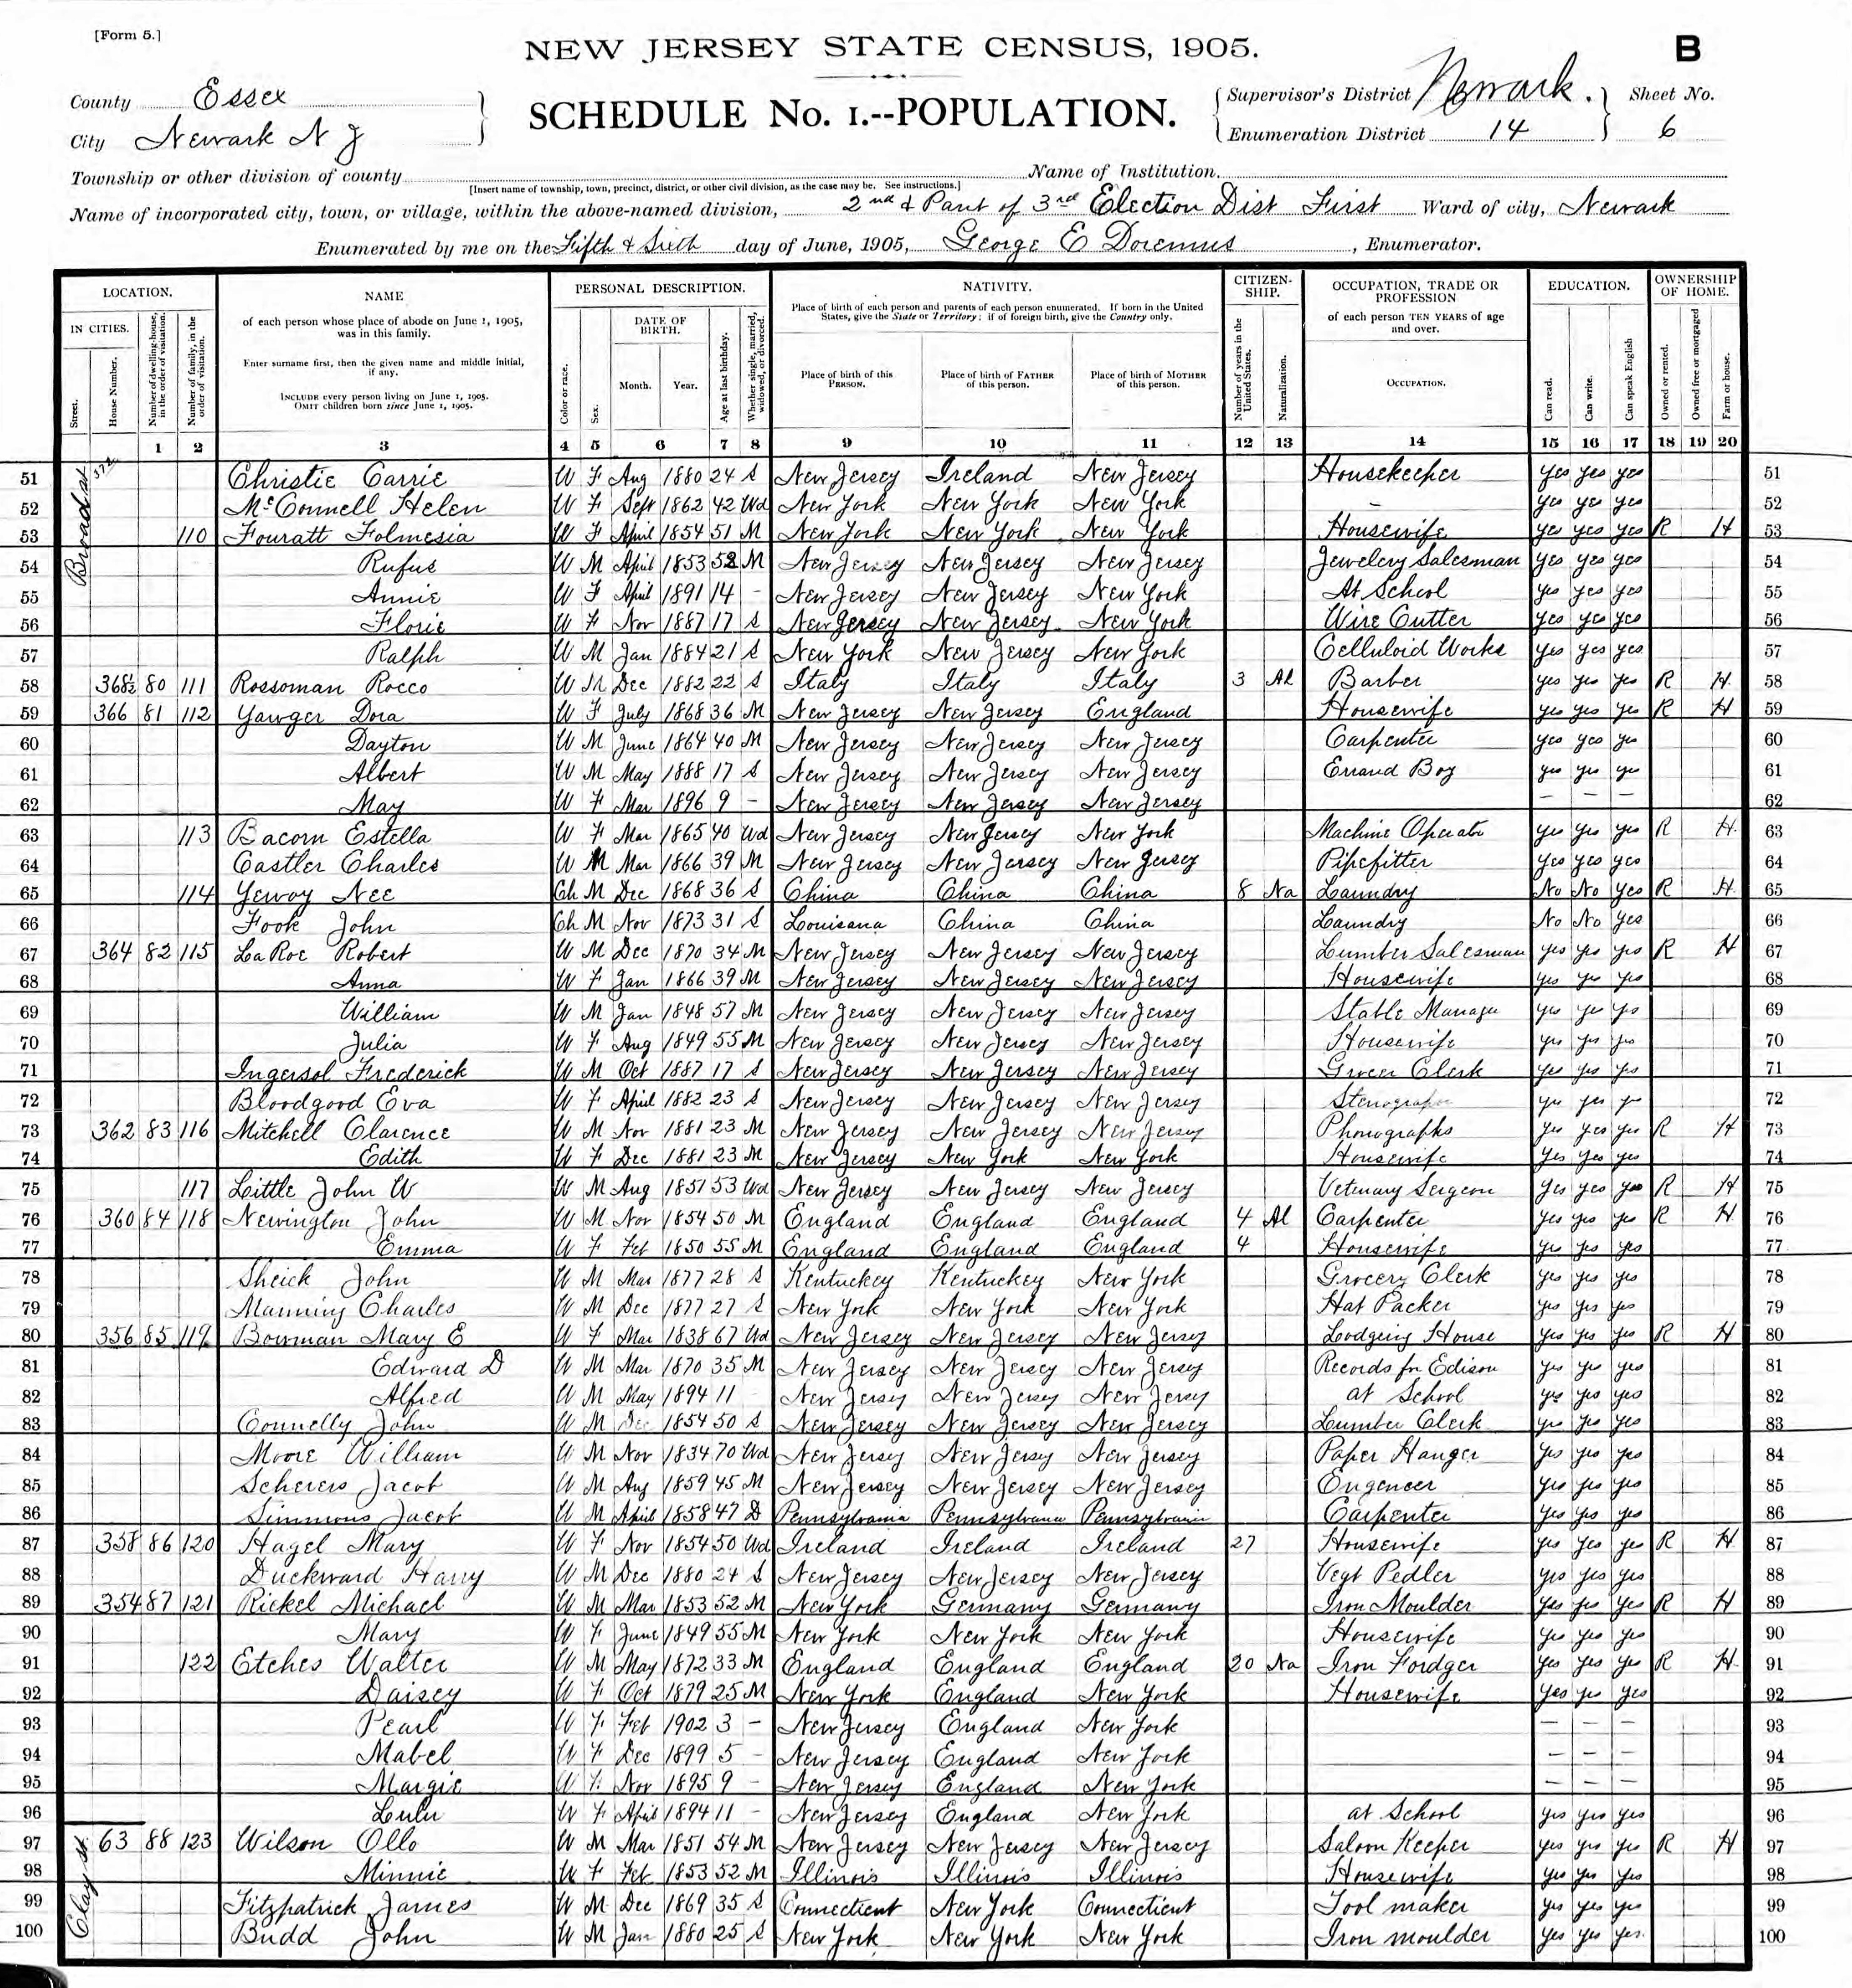 [Form 5.]
NEW JERSEY STATE CENSUS, 1905.
B
County Essex
SCHEDULE No. 1.--POPULATION.
Supervisor's District Newark. Sheet No.
City Newark N J
Enumeration District 14 6
Township or other division of county
Name of Institution.
[Insert name of township, town, precinct, district, or other civil division, as the case may be. See instructions.]
Name of incorporated city, town, or village, within the above-named division, 2nd & Part of 3rd Election Dist First Ward of city, Newark
Enumerated by me on the Fifth & Sixth day of June, 1905, George E Doremus, Enumerator.
LOCATION.
IN CITIES.
Street.
House Number.
Number of dwelling-house, in the order of visitation.
Number of family, in the order of visitation.
NAME
of each person whose place of abode on June 1, 1905, was in this family.
Enter surname first, then the given name and middle initial, if any.
INCLUDE every person living on June 1, 1905.
OMIT children born since June 1, 1905.
PERSONAL DESCRIPTION.
Color or race.
Sex.
DATE OF BIRTH.
Month.
Year.
Age at last birthday.
Whether single, married, widowed, or divorced.
NATIVITY.
Place of birth of each person and parents of each person enumerated. If born in the United States, give the State or Territory; if of foreign birth, give the Country only.
Place of birth of this PERSON.
Place of birth of FATHER of this person.
Place of birth of MOTHER of this person.
CITIZEN-SHIP.
Number of years in the United States.
Naturalization.
OCCUPATION, TRADE OR PROFESSION
of each person TEN YEARS of age and over.
OCCUPATION.
EDUCATION.
Can read.
Can write.
Can speak English
OWNERSHIP OF HOME.
Owned or rented.
Owned free or mortgaged
Farm or house.
1 2 3 4 5 6 7 8 9 10 11 12 13 14 15 16 17 18 19 20
Broad st 372
51 Christie Carrie W F Aug 1880 24 S New Jersey Ireland New Jersey Housekeeper Yes Yes Yes 51
52 McConnell Helen W F Sept 1862 42 Wd New York New York New York – Yes Yes Yes 52
53 110 Fouratt Folmesia W F April 1854 51 M New York New York New York Housewife Yes Yes Yes R H 53
54 Rufus W M April 1853 52 M New Jersey New Jersey New Jersey Jewelery Salesman Yes Yes Yes 54
55 Annie W F April 1891 14 – New Jersey New Jersey New York At School Yes Yes Yes 55
56 Florie W F Nov 1887 17 S New Jersey New Jersey New York Wire Cutter Yes Yes Yes 56
57 Ralph W M Jan 1884 21 S New York New Jersey New York Celluloid Works Yes Yes Yes 57
58 368½ 80 111 Rossoman Rocco W M Dec 1882 22 S Italy Italy Italy 3 Al Barber Yes Yes Yes R H 58
59 366 81 112 Yawger Dora W F July 1868 36 M New Jersey New Jersey England Housewife Yes Yes Yes R H 59
60 Dayton W M June 1864 40 M New Jersey New Jersey New Jersey Carpenter Yes Yes Yes 60
61 Albert W M May 1888 17 S New Jersey New Jersey New Jersey Errand Boy Yes Yes Yes 61
62 May W F Mar 1896 9 – New Jersey New Jersey New Jersey – – – 62
63 113 Bacorn Estella W F Mar 1865 40 Wd New Jersey New Jersey New York Machine Operator Yes Yes Yes R H 63
64 Castler Charles W M Mar 1866 39 M New Jersey New Jersey New Jersey Pipefitter Yes Yes Yes 64
65 114 Yewoy Nee Ch M Dec 1868 36 S China China China 8 Na Laundry No No Yes R H 65
66 Fook John Ch M Nov 1873 31 S Louisana China China Laundry No No Yes 66
67 364 82 115 LaRoe Robert W M Dec 1870 34 M New Jersey New Jersey New Jersey Lumber Salesman Yes Yes Yes R H 67
68 Anna W F Jan 1866 39 M New Jersey New Jersey New Jersey Housewife Yes Yes Yes 68
69 William W M Jan 1848 57 M New Jersey New Jersey New Jersey Stable Manager Yes Yes Yes 69
70 Julia W F Aug 1849 55 M New Jersey New Jersey New Jersey Housewife Yes Yes Yes 70
71 Ingersol Frederick W M Oct 1887 17 S New Jersey New Jersey New Jersey Clerk Yes Yes Yes 71
72 Bloodgood Eva W F April 1882 23 S New Jersey New Jersey New Jersey Stenographer Yes Yes Yes 72
73 362 83 116 Mitchell Clarence W M Nov 1881 23 M New Jersey New Jersey New Jersey Phonographs Yes Yes Yes R H 73
74 Edith W F Dec 1881 23 M New Jersey New York New York Housewife Yes Yes Yes 74
75 117 Little John W W M Aug 1851 53 Wd New Jersey New Jersey New Jersey Vetinary Sergeon Yes Yes Yes R H 75
76 360 84 118 Newington John W M Nov 1854 50 M England England England 4 Al Carpenter Yes Yes Yes R H 76
77 Emma W F Feb 1850 55 M England England England 4 Housewife Yes Yes Yes 77
78 Sheick John W M Mar 1877 28 S Kentuckey Kentuckey New York Grocery Clerk Yes Yes Yes 78
79 Manning Charles W M Dec 1877 27 S New York New York New York Hat Packer Yes Yes Yes 79
80 356 85 119 Bowman Mary E W F Mar 1838 67 Wd New Jersey New Jersey New Jersey Lodgeing House Yes Yes Yes R H 80
81 Edward D W M Mar 1870 35 M New Jersey New Jersey New Jersey Records for Edison Yes Yes Yes 81
82 Alfred W M May 1894 11 New Jersey New Jersey New Jersey at School Yes Yes Yes 82
83 Connelly John W M Dec 1854 50 S New Jersey New Jersey New Jersey Lumber Clerk Yes Yes Yes 83
84 Moore William W M Nov 1834 70 Wd New Jersey New Jersey New Jersey Paper Hanger Yes Yes Yes 84
85 Scherers Jacob W M Aug 1859 45 M New Jersey New Jersey New Jersey Engeneer Yes Yes Yes 85
86 Simmons Jacob W M April 1858 47 D Pennsylvania Pennsylvania Pennsylvania Carpenter Yes Yes Yes 86
87 358 86 120 Hagel Mary W F Nov 1854 50 Wd Ireland Ireland Ireland 27 Housewife Yes Yes Yes R H 87
88 Duckward Harry W M Dec 1880 24 S New Jersey New Jersey New Jersey Vegt Pedler Yes Yes Yes 88
89 354 87 121 Rickel Michael W M Mar 1853 52 M New York Germany Germany Iron Moulder Yes Yes Yes R H 89
90 Mary W F June 1849 55 M New York New York New York Housewife Yes Yes Yes 90
91 122 Etches Walter W M May 1872 33 M England England England 20 Na Iron Fordger Yes Yes Yes R H 91
92 Daisey W F Oct 1879 25 M New York England New York Housewife Yes Yes Yes 92
93 Pearl W F Feb 1902 3 – New Jersey England New York – – – 93
94 Mabel W F Dec 1899 5 – New Jersey England New York – – – 94
95 Margie W F Nov 1895 9 – New Jersey England New York – – – 95
96 Lulu W F April 1894 11 – New Jersey England New York at School Yes Yes Yes 96
Clay st
97 63 88 123 Wilson Ollo W M Mar 1851 54 M New Jersey New Jersey New Jersey Saloon Keeper Yes Yes Yes R H 97
98 Minnie W F Feb 1853 52 M Illinois Illinois Illinois Housewife Yes Yes Yes 98
99 Fitzpatrick James W M Dec 1869 35 S Connecticut New York Connecticut Tool maker Yes Yes Yes 99
100 Budd John W M Jan 1880 25 S New York New York New York Iron moulder Yes Yes Yes 100